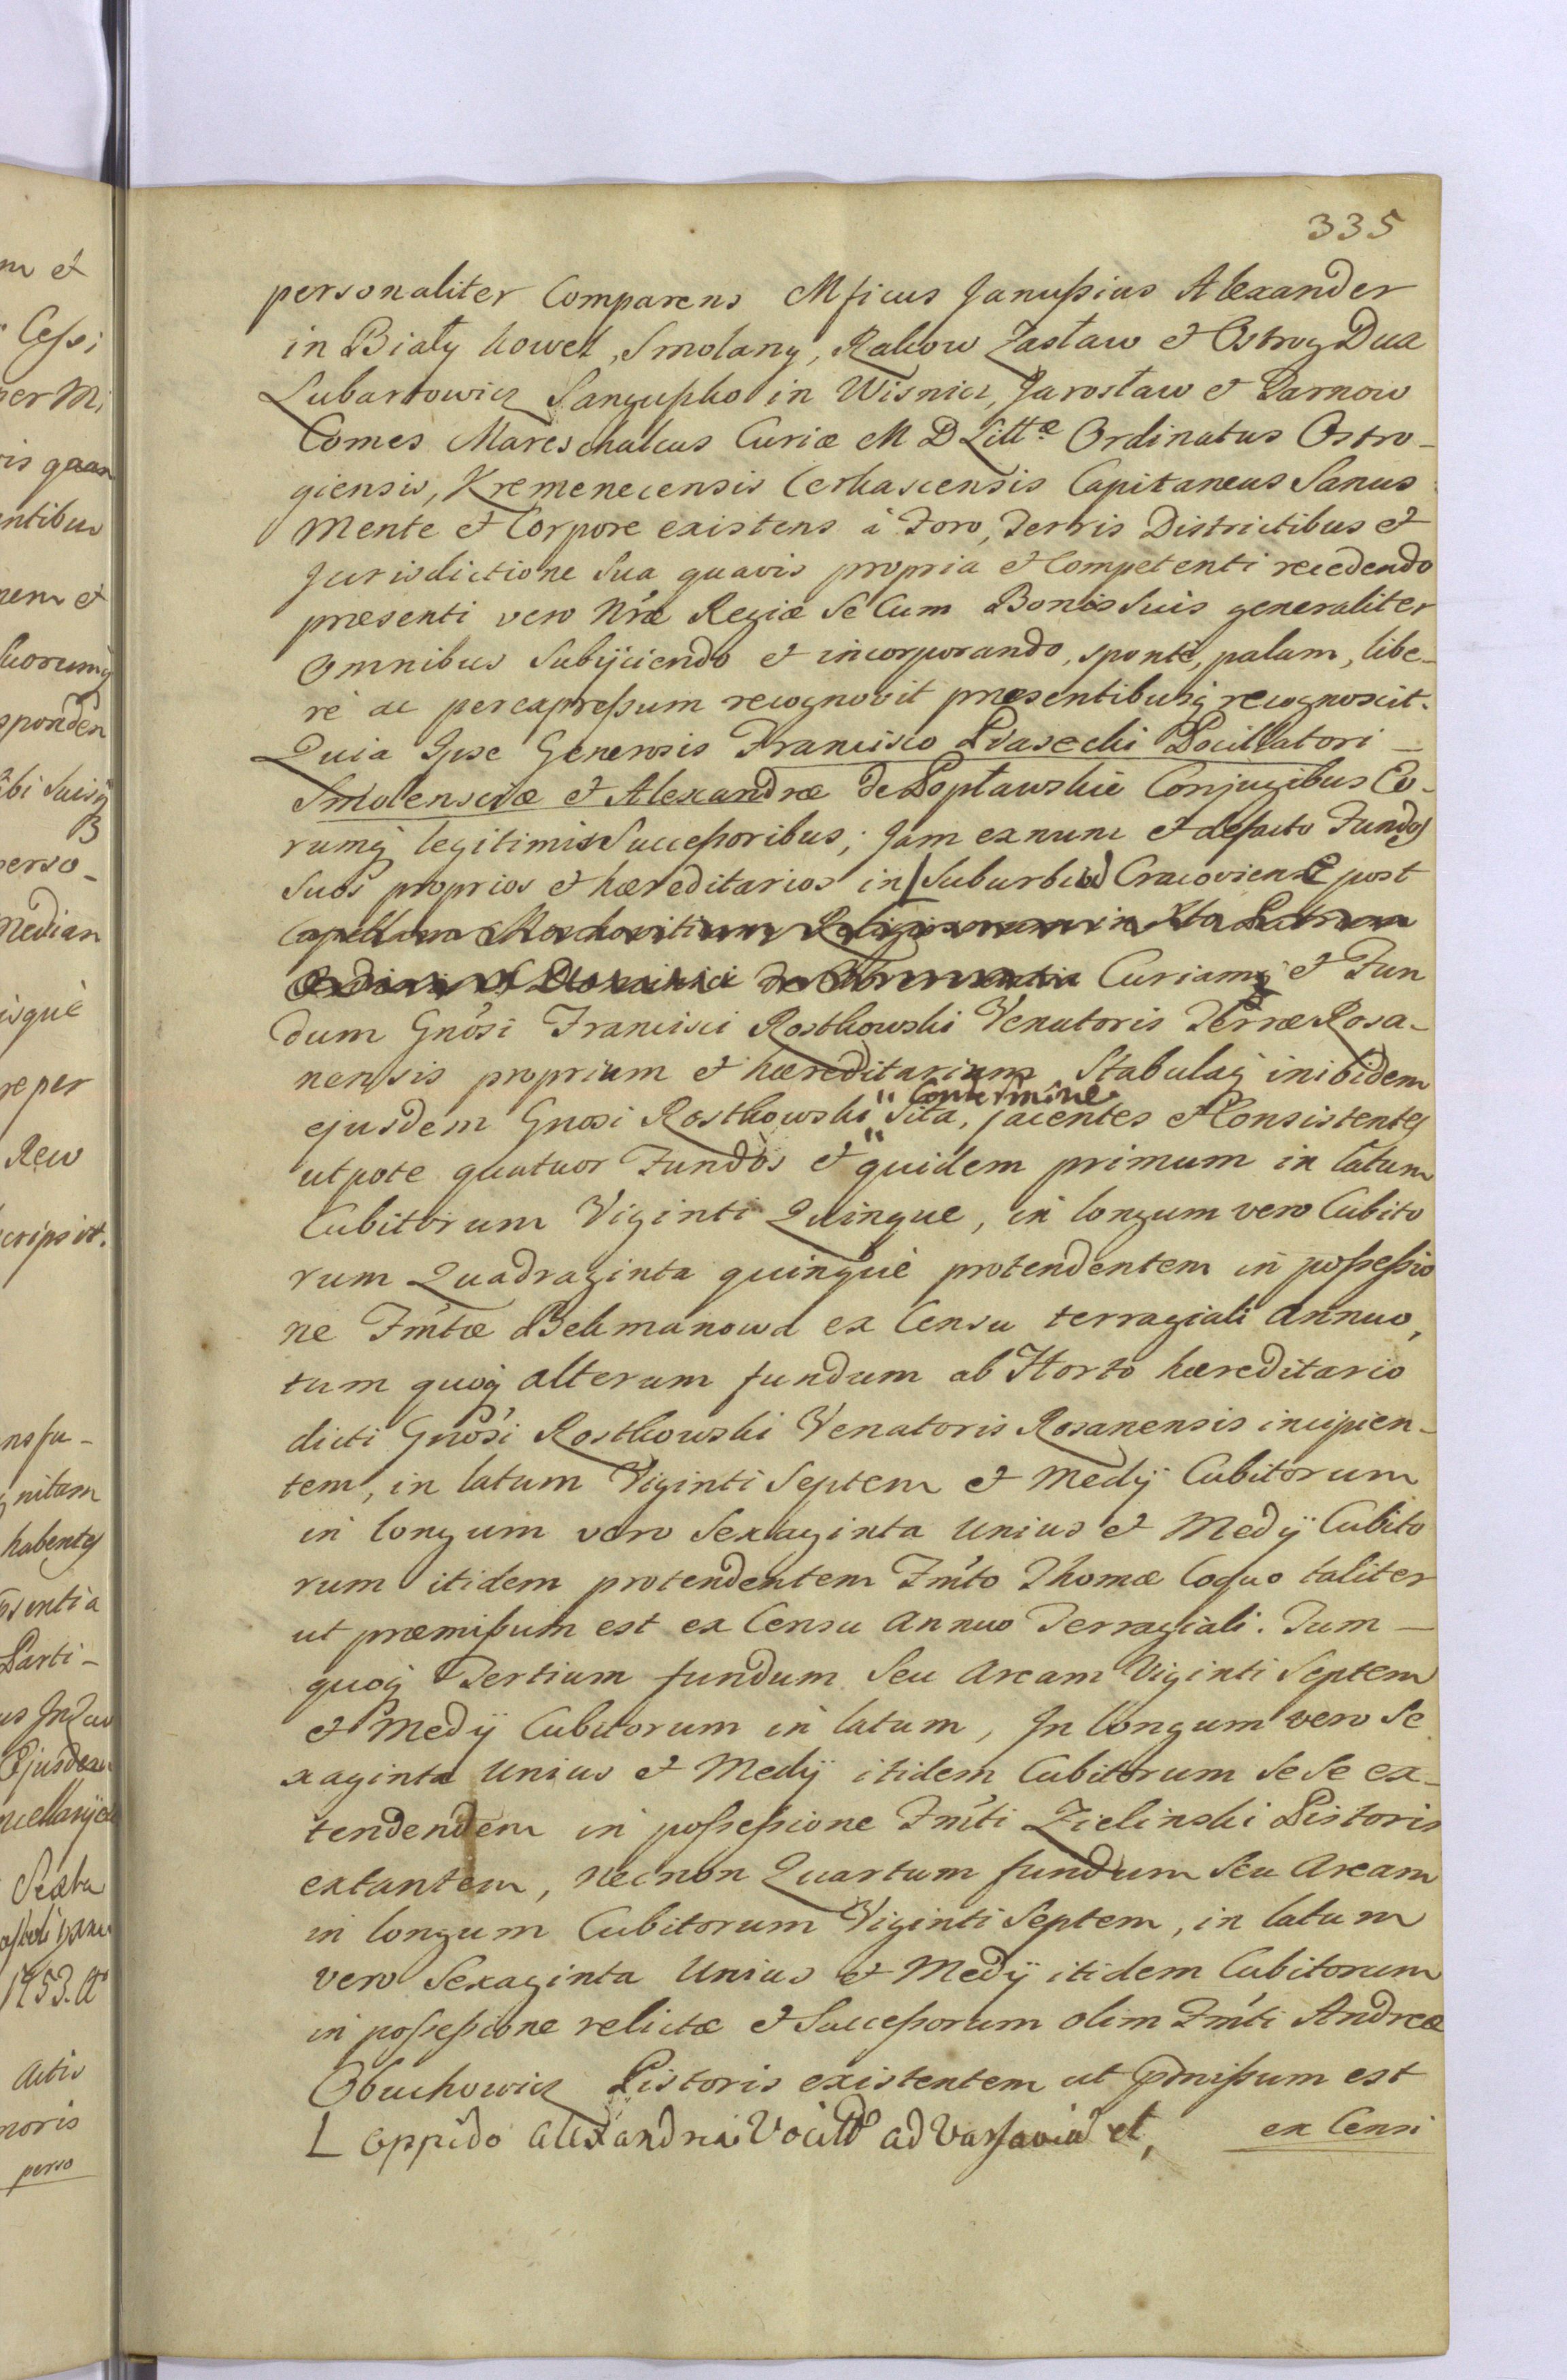 335
personaliter Comparens Mficus Janussius Alexander
in Biały kowel, Smolany, Rakow Zasław et Ostrog Dux
Lubartowicz Sangusko in Wisnicz, Jarosław et Tarnow
Comes Mareschalcus Curiæ M D Littæ Ordinatus Ostro-
giensis, Kremenecensis Cerkascensis Capitaneus Sanus
Mente et Corpore existens à Foro, Terris Districtibus et
Jurisdictione Sua quavis propria et Competenti recedendo
præsenti vero Nræ Regiæ Se Cum Bonis Suis generaliter
Omnibus Subijciendo et incorporando, sponte, palam, libe-
rè ac perexpressum recognovit præsentibusq recognoscit.
Quia Ipse Generosis Francisco Piasecki Pocillatori
Smolensciæ et Alexandræ de Popławskie Conjugibus Eo-
rumq legitimis Successoribus; Jam exnunc et defacto Fundos
Suos proprios et hæreditarios in Suburbio Cracoviensi post
Capellam Moschovitium Curiamq et Fun
dum Gnosi Francisci Rostkowski Venatoris Terræ Rosa-
nensis proprium et hæreditarium Stabulaq inibidem
ejusdem Gnosi Rostkowski " Sita, jacentes et Consistentes
" Contermine
utpote quatuor Fundos et quidem primum in latum
Cubitorum Viginti Quinque, in longum vero Cubito
rum Quadraginta quinque protendentem in possessio
ne Fmtæ Bekmanowa ex Censu terragiali annuo,
tum quoq alterum fundum ab Horto hæreditario
dicti Gnosi Rostkowski Venatoris Rosanensis incipien-
tem, in latum Viginti Septem et Medij Cubitorum
in longum vero Sexaginta Unius et Medij Cubito
rum itidem protendentem Fmto Thomæ Coquo taliter
ut præmissum est ex Censu Annuo Terragiali. Tum
quoq Tertium fundum Seu Aream Viginti Septem
et Medij Cubitorum in latum, In longum vero Se
xaginta Unius et Medij itidem Cubitorum Se Se ex-
tendendem in possessione Fmti Zielinski Pistoris
extantem, necnon Quartum fundum Seu Aream
in longum Cubitorum Viginti Septem, in latum
vero Sexaginta Unius et Medij itidem Cubitorum
in possessione relictæ et Successorum olim Fmti Andreæ
Obuchowicz Pistoris existentem ut pmissum est
L oppido Alexandria ad Varsaviā et,
ex Censi